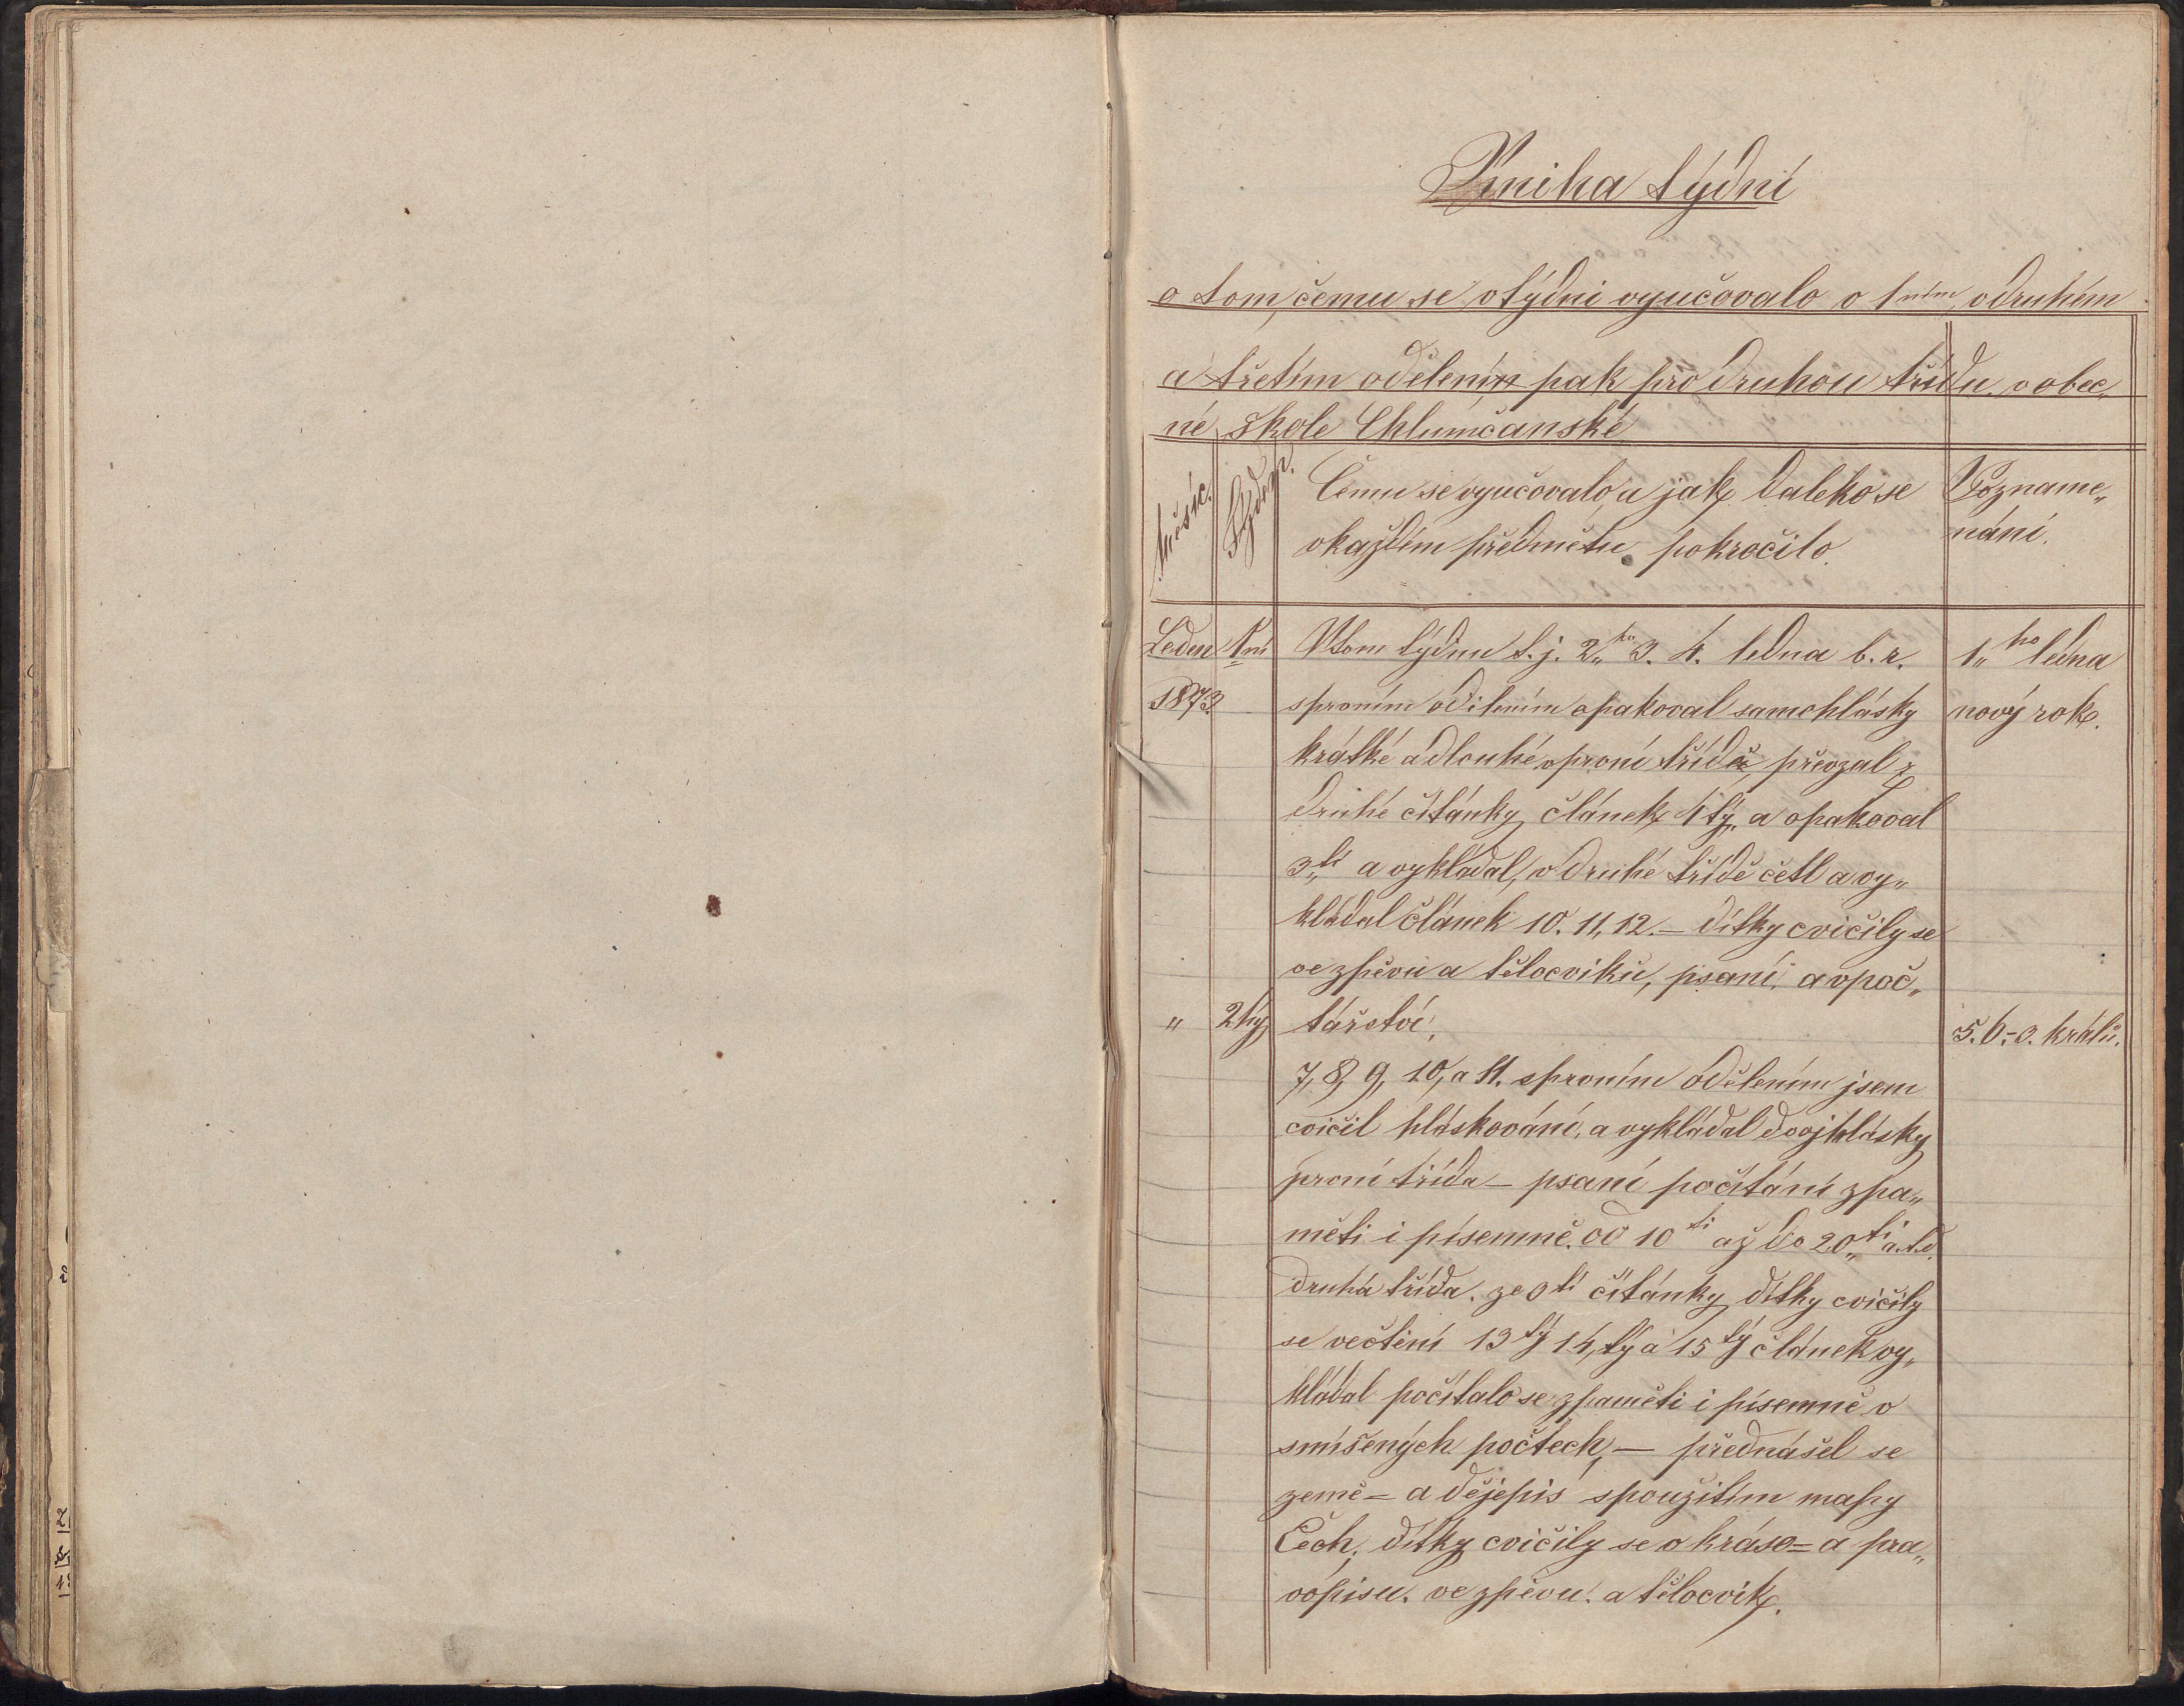 Kniha týdní
o tom, čemu se v týdni vyučovalo v 1ním, vdruhém
a třetím odělením pak pro druhou třídu v obec„
né škole Chlumčanské
Měsíc. Týden. Čemu se vyučovalo, a jak daleko se Pozname„
vkaždém předmětu pokročilo. nání.
Leden 1ní Vtom týdnu t. j. 2„ho 3. 4. ledna b. r. 1„ho ledna
1873. sprvním odělením opakoval samohlásky nový rok.
krátké a dlouhé vprvní třídě, převzal z
druhé čítánky článek 4tý„ a opakoval
3„tí a vykládal, v druhé třídě četl a vy„
kládal článek 10. 11, 12. – dítky cvičily se
ve zpěvu a tělocviku, psaní, a vpoč„
„ 2hý tářství, 5. 6. – 3. králů.
7, 8, 9, 10, a 11. sprvním odělením jsem
cvičil hláskování, a vykládal dvojhlásky
první třída – psaní počítání zpa„
měti i písemně. od 10ti až do 20„ti a.t.d.
druhá třída. ze 3tí čítánky dítky cvičily
se večtení 13tý 14,tý a 15tý článek vy„
kládal počítalo se zpaměti i písemně v
smíšených počtech, – přednášel se
země= a dějepis spoužitím mapy
Čech, dítky cvičily se v kráso= a pra„
vopisu. ve zpěvu. a tělocvik.